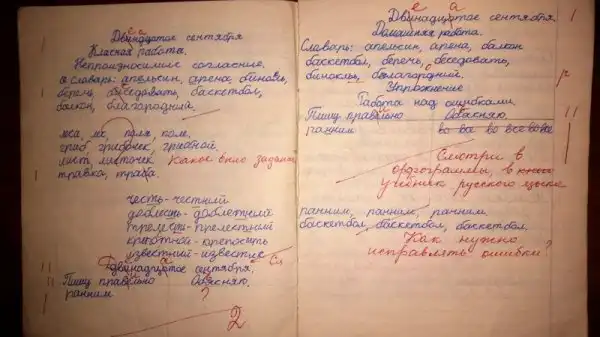 Двинадцатое сентября
Класная работа.
Непроизносимые согласные,
а словарь: апельсин, арена, бинокль,
беречь, беседовать, баскетбол,
балкон, благородный.
леса, лес, поля, поле,
гриб грибочек, грибной,
лист, листочек Какое было задание
травка, трава.
честь - честний
доблесть - доблестний
прелесть - прелестний
крепостной - крепость
известний - известие
двинадцатое сентября.
Пишу правельно Объясняю.
ранним ?
2
е а
Двинадцатое сентября.
Домашняя работа.
Словарь: апельсин, арена, балкон
баскетбол, беречь, беседовать,
бинокль, благародний.
Упражнение
Работа над ошибками.
Пишу правельно Обясняю.
ранним
Смотри в
орфограммы, в
учебник русского языка
ранним, ранним, ранним,
баскетбол, баскетбол, баскетбол.
Как нужно
исправлять ошибки?